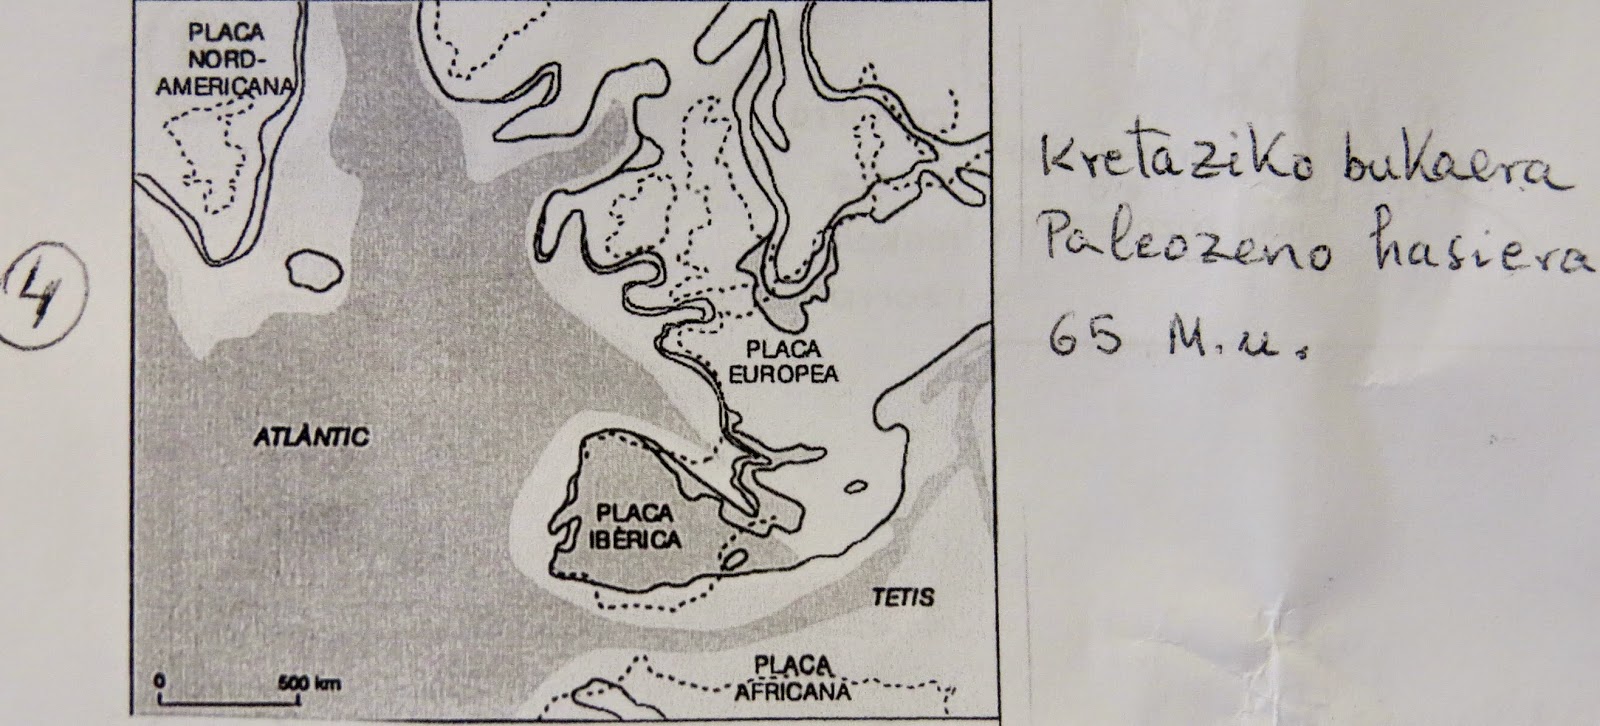 4
PLACA
NORD-
AMERICANA
Kretaziko bukaera
Paleozeno hasiera
65 M.u.
PLACA
EUROPEA
ATLÀNTIC
PLACA
IBÈRICA
TETIS
PLACA
AFRICANA
0 500 km